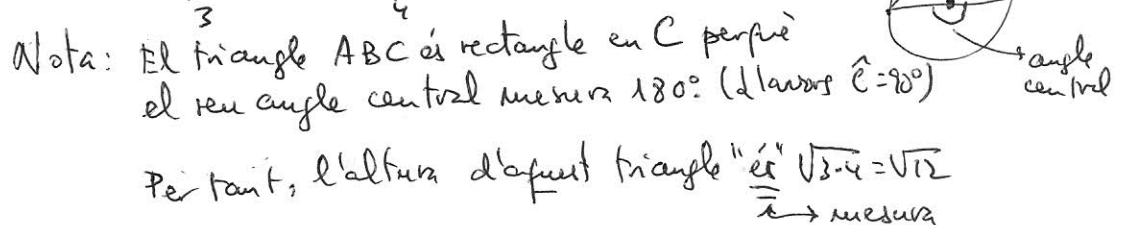 3 4
Nota: El triangle ABC és rectangle en C perquè
el seu angle central mesura 180º (llavors Ĉ=90º)
angle
central
Per tant, l'altura d'aquest triangle "és" √3·4 = √12
→ mesura